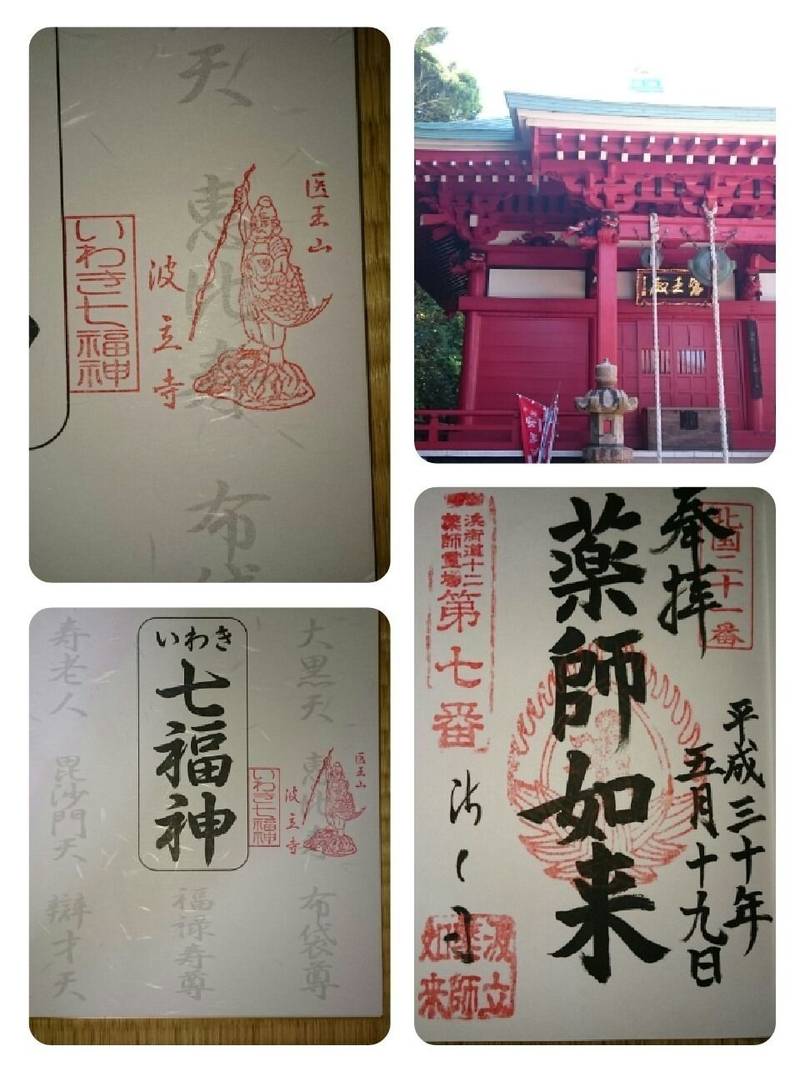 天
恵比寿
布袋
医王山
波立寺
いわき七福神
醫王殿
大黒天
恵比寿
布袋尊
いわき
七福神
福禄寿尊
寿老人
毘沙門天
辯才天
医王山
波立寺
いわき七福神
北国二十一番
奉拝
平成三十年
五月十九日
薬師如来
浜街道十二
薬師霊場
第七番
波立
薬師
如来